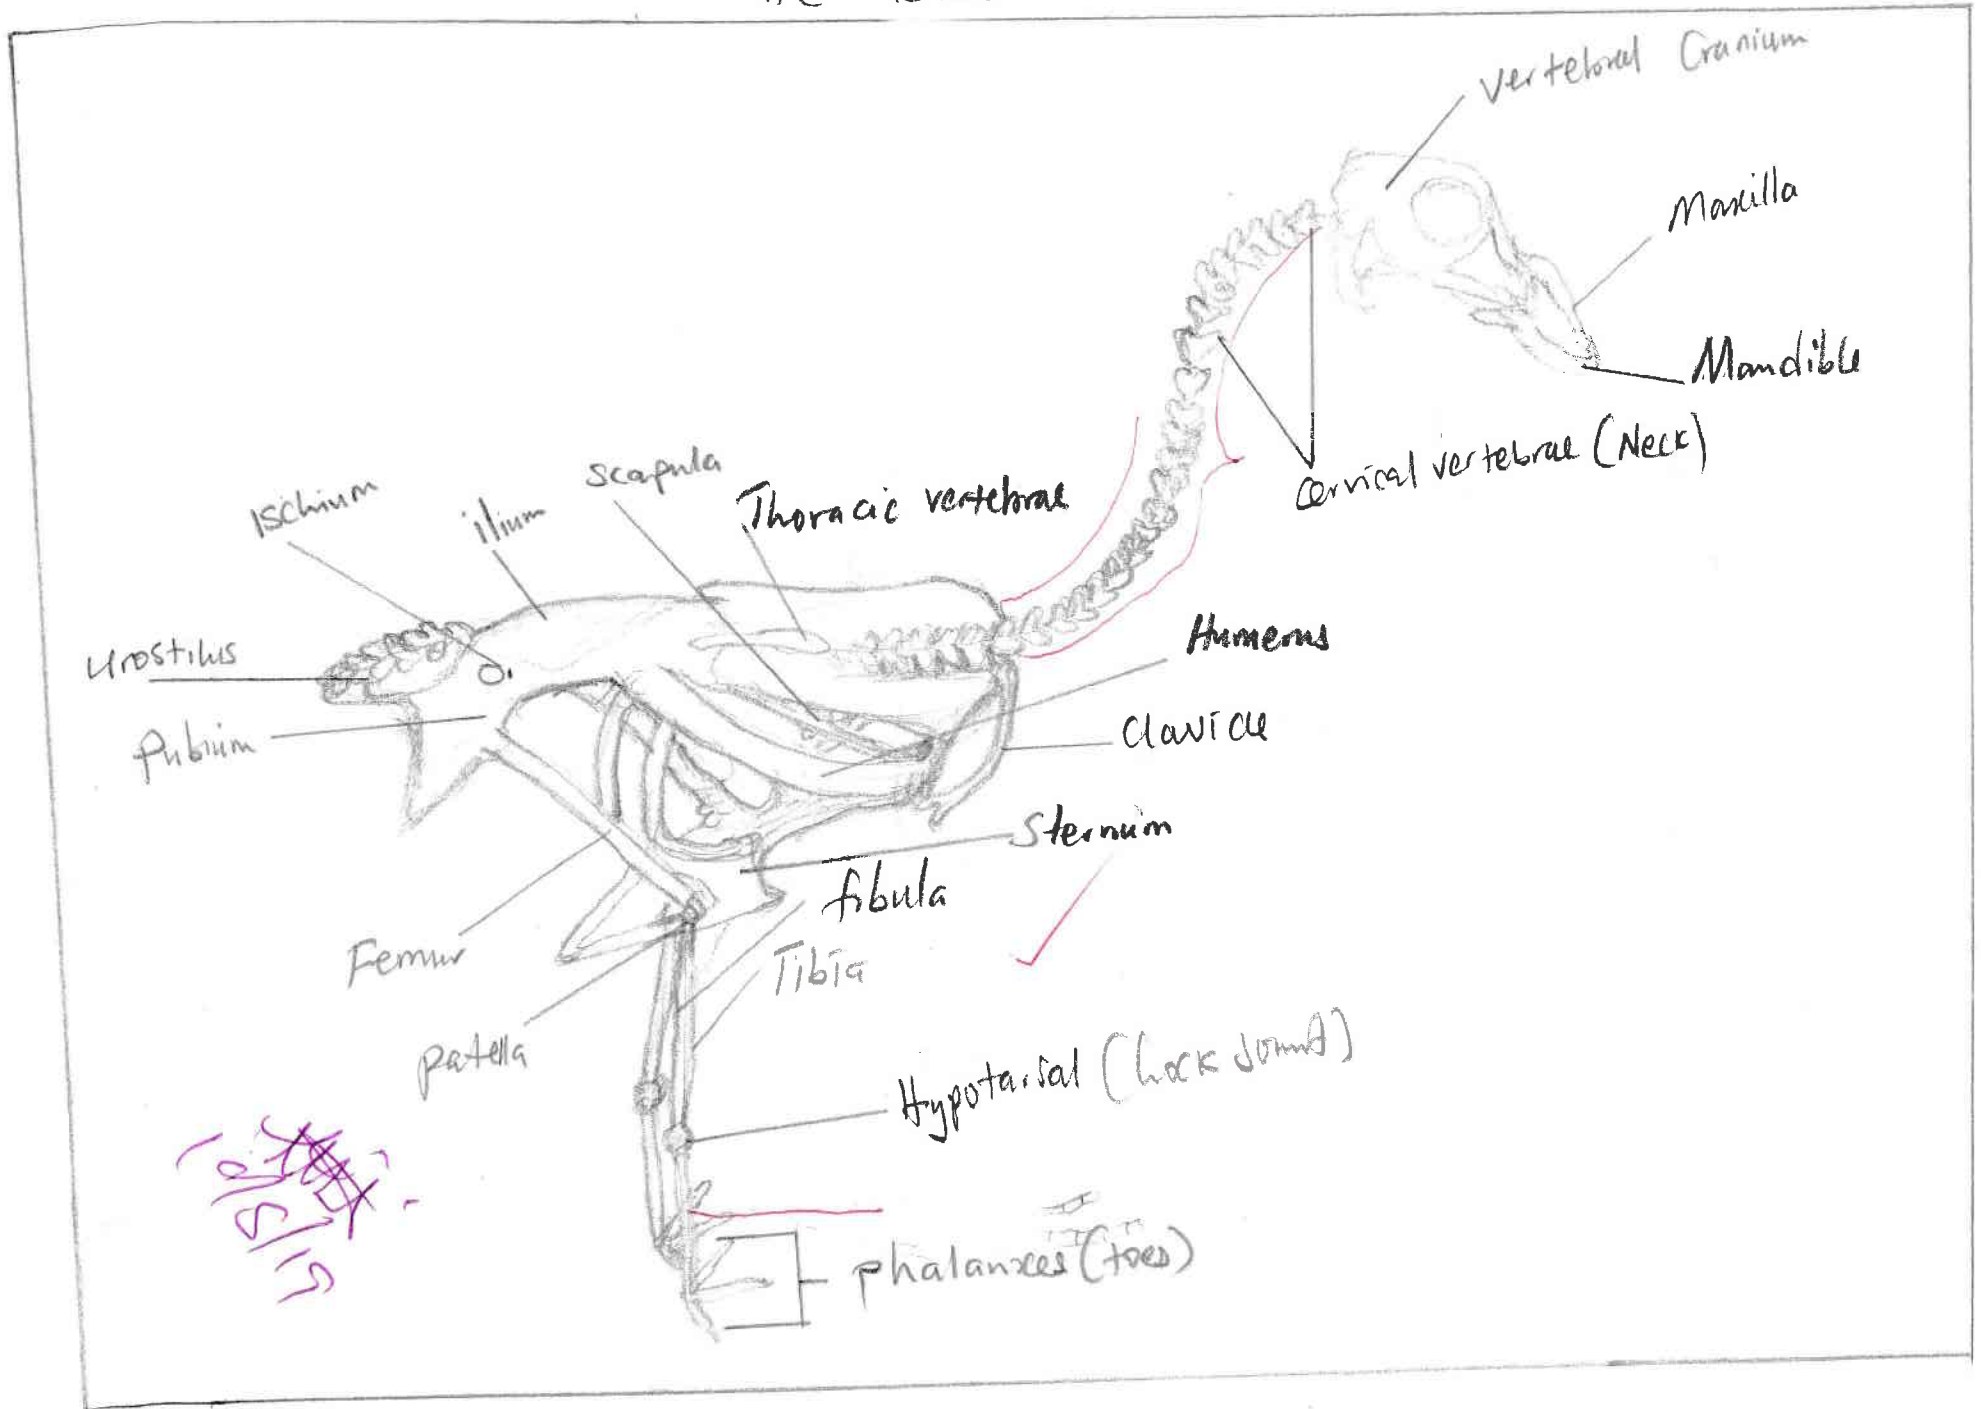 vertebral Cranium
Maxilla
Mandible
Cervical vertebrae (Neck)
Scapula
Ischium
ilium
Thoracic vertebrae
Humerus
Urostilus
Pubium
Clavicle
Sternum
fibula
Femur
Tibia
patella
Hypotarsal (hock Joint)
phalanxes (toes)